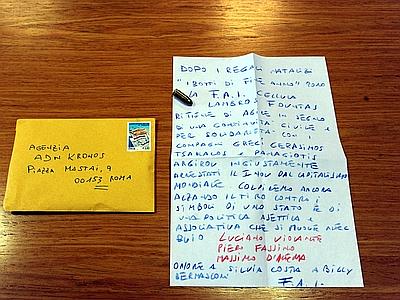 AGENZIA
ADN KRONOS
PIAZZA MASTAI, 9
00153 ROMA
DOPO I REGALI NATALIZI
"I BOTTI DI FINE ANNO" 2010
LA F.A.I. CELLULA
LAMBROS FOUNTAS
RITIENE DI AGIRE IN SEGNO
DI UNA CONTINUITÀ CIVILE E
PER SOLIDARIETÀ CON I
COMPAGNI GRECI GERASIMOS
TSAKALOS E PANAGIOTIS
ARGIROU INGIUSTAMENTE
ARRESTATI IL 1 NOV DAL CAPITALISMO
MONDIALE COLPIREMO ANCORA
ALZANDO IL TIRO CONTRO I
SIMBOLI DI UNO STATO E DI
UNA POLITICA ASETTICA E
ASSOCIATIVA CHE SI MUOVE NEL
BUIO LUCIANO VIOLANTE
PIERO FASSINO
MASSIMO D'ALEMA
ONORE A SILVIA COSTA A BILLY
BERNASCONI
F.A.I.